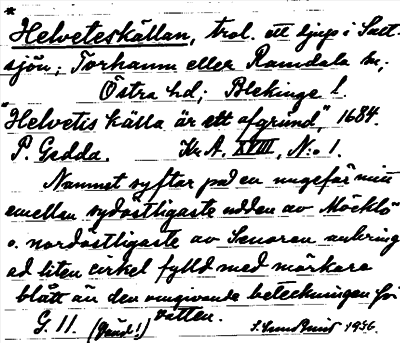 *
Helveteskällan, trol. ett djup i Salt-
sjön; Torhamn eller Ramdala sn;
Östra hd; Blekinge l.
"Helvetis källa är ett afgrund", 1684.
P. Gedda. Kr. A. XVIII, N:o 1.
Namnet syftar på en ungefär mitt
emellan sydöstligaste udden av Möcklö
o. nordöstligaste av Senoren anbring-
ad liten cirkel fylld med mörkare
blått än den omgivande beteckningen för
G. 11. (Jänd!) vatten.
1936.